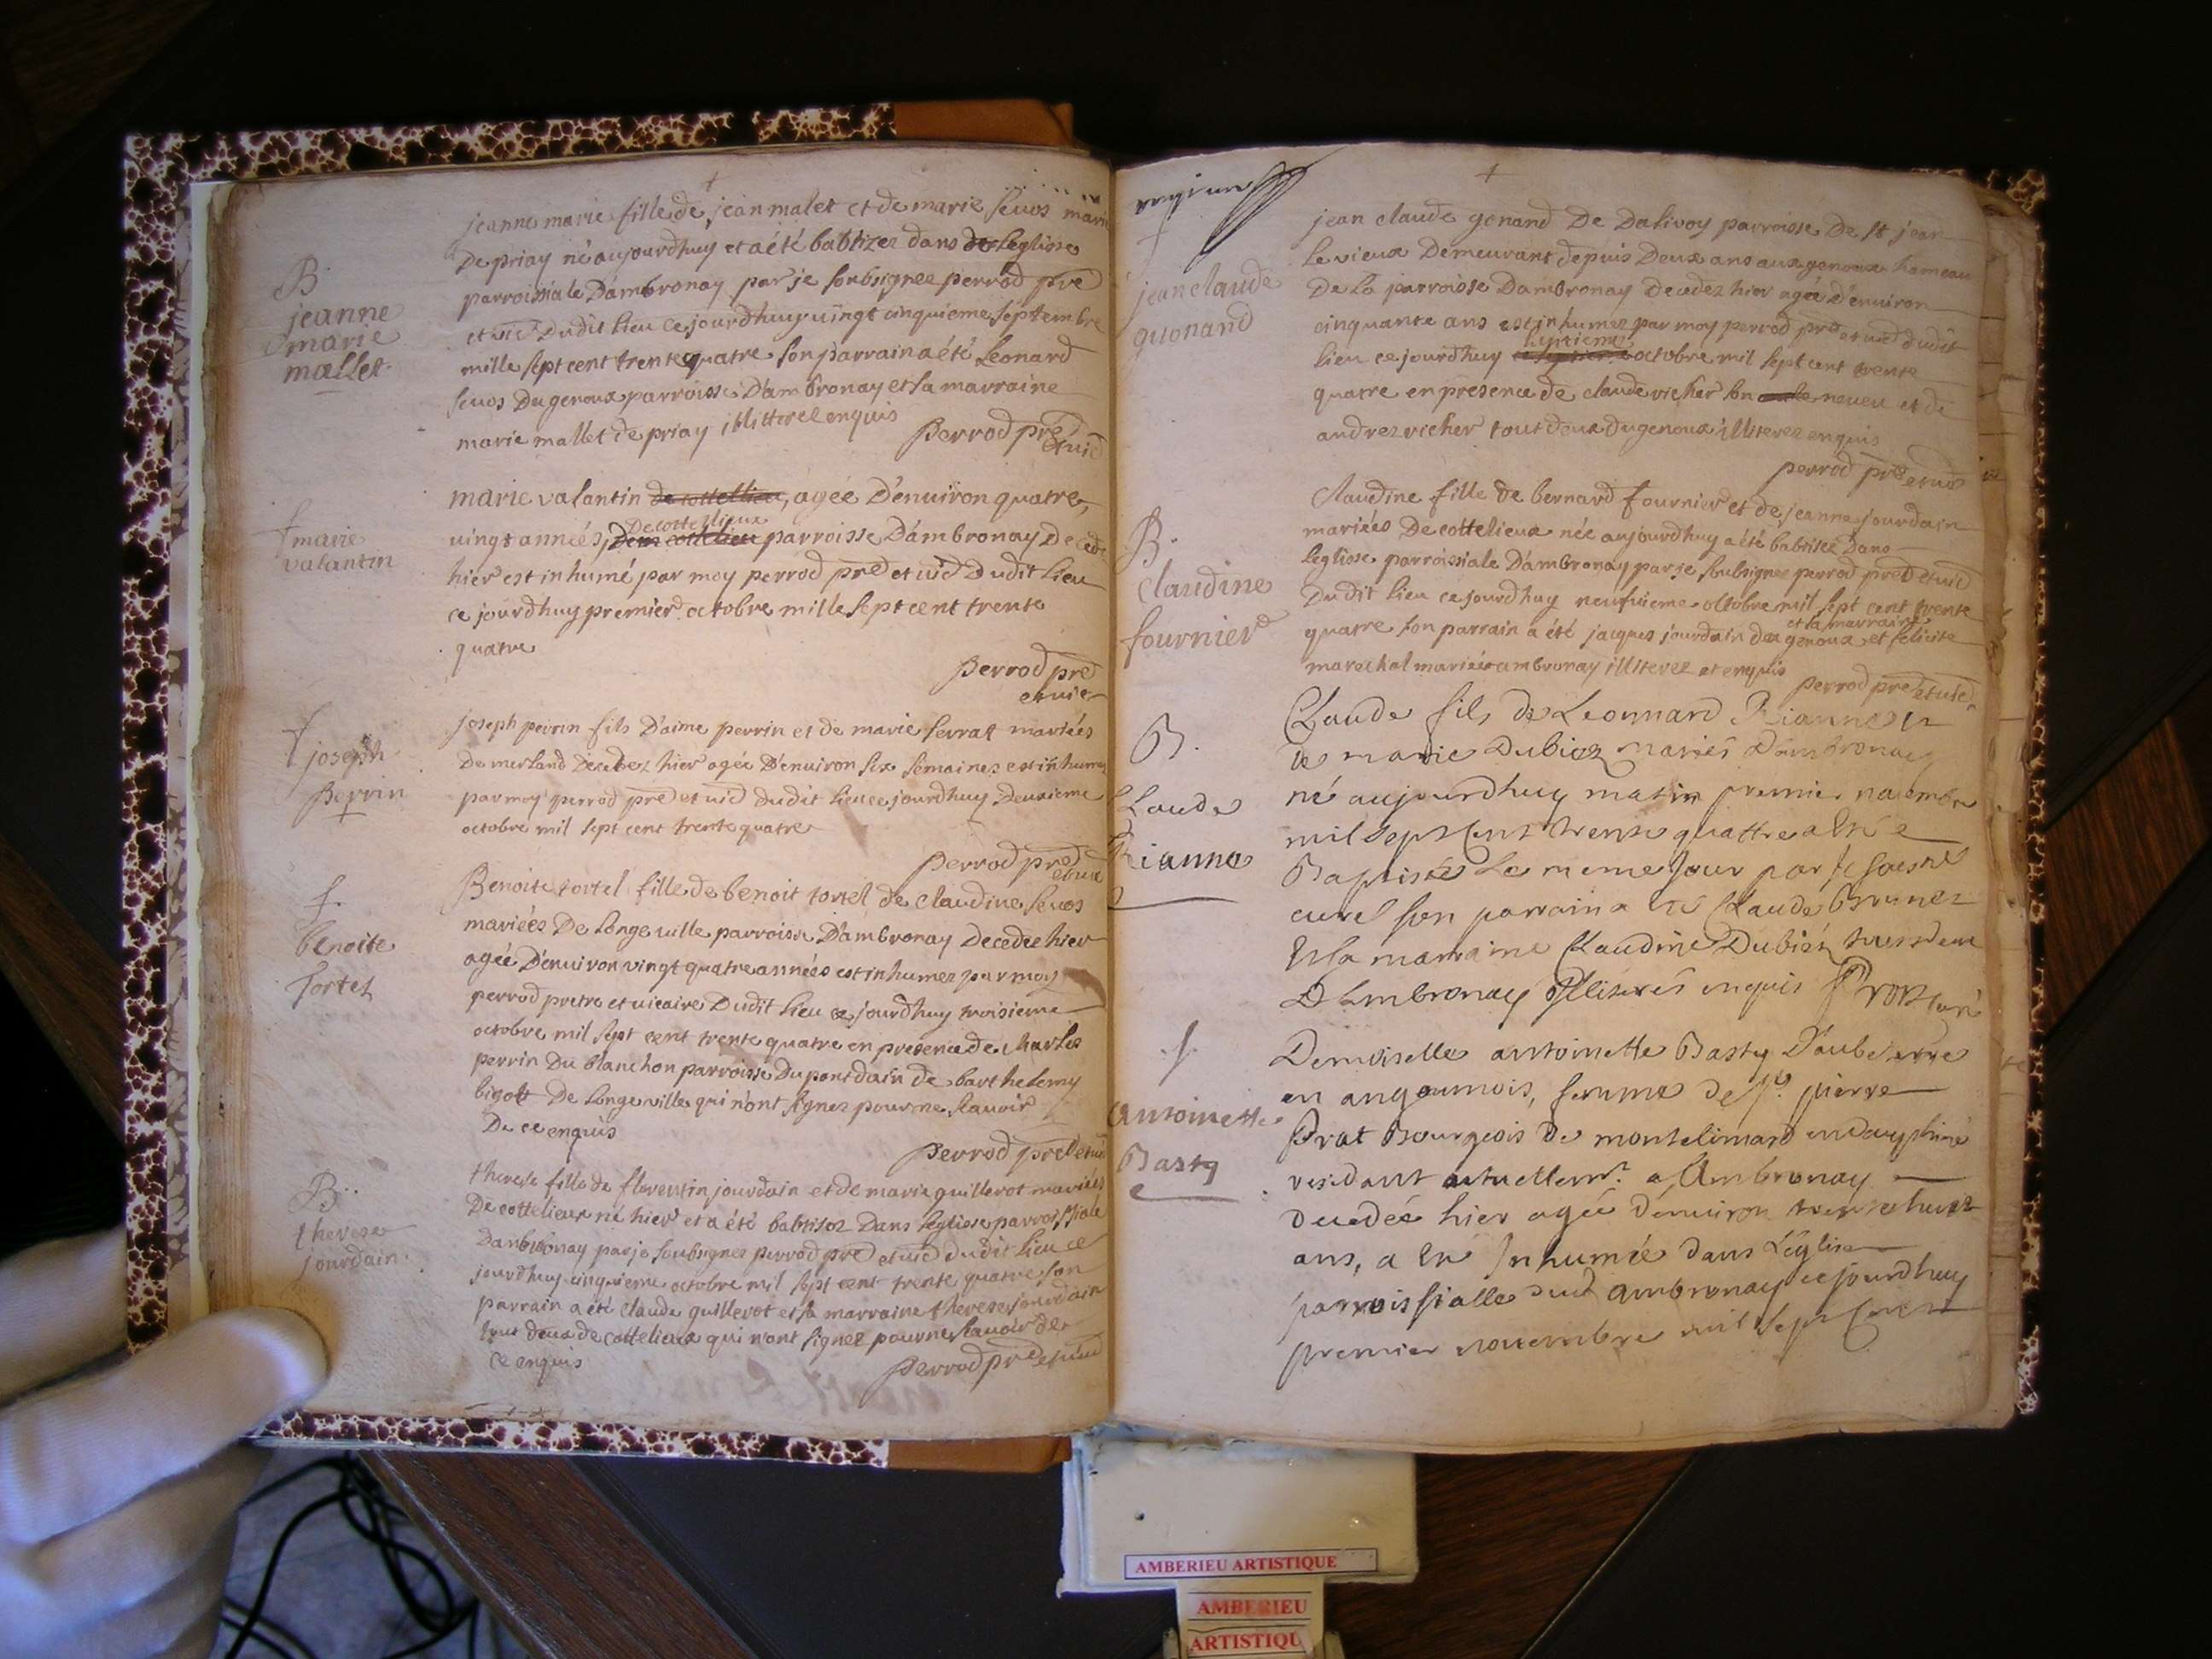 B
jeanne
marie
mallet
jeanne marie fille de jean malet et de marie seuos marié
de priay né aujourdhuy et a été babtizez dans de leglise
parroissiale Dambronay par je soubsignez perrod pre
et uic dudit lieu ce jourdhuy uingt cinquieme septembre
mille sept cent trente quatre son parrain a été Leonard
seuos Du genoux parroisse D'ambronay et la marraine
marie mallet de priay illitterel enquis
perrod pre et uic
f marie
valantin
marie valantin de cottellieu, agée D'enuiron quatre
De cottellieux
uingt années, parroisse D'ambronay Decede
hier est inhumé par moy perrod pre et uic Dudit Lieu
ce jourdhuy premier octobre mille sept cent trente
quatre
perrod pre
et uic
f joseph
perrin
joseph perrin fils D'aime perrin et de marie serrat mariés
De merland Decedez hier agée D'enuiron six semaines est inhumez
par moy perrod pre et uic dudit lieu ce jourdhuy Deuxieme
octobre mil sept cent trente quatre
perrod pre
et uic
f.
benoite
tortel
Benoite tortel fille de benoit tortel de claudine seuos
mariées De Longeuille parroisse D'ambronay Decedée hier
agée D'enuiron vingt quatre années est inhumez par moy
perrod pretre et uicaire Dudit Lieu ce jourdhuy troisieme
octobre mil sept cent trente quatre en presence de charles
perrin Du blanchon parroisse Du pontdain de barthelemy
bigott De Longeville qui n'ont signez pour ne sauoir
De ce enquis
perrod pre et uic
B
therese
jourdain
therese fille de florentin jourdain et de marie quillerot mariées
De cottelieux né hier et a été babtisez Dans leglise parroissiale
Dambronay par je soubsignez perrod pre et uic dudit lieu ce
jourdhuy cinquieme octobre mil sept cent trente quatre son
parrain a été claude quillerot et la marraine therese jourdain
tout deux de cottelieux qui n'ont signez pour ne sauoir de
ce enquis
perrod pre et uic
f
jean claude
guonand
jean claude gonand De Dalivoy parroisse De st jean
le vieux Demeurant depuis Deux ans aux genoux hameau
De La parroisse Dambronay Decedez hier agée D'enuiron
cinquante ans est inhumez par moy perrod pre et uic dudit
septieme
lieu ce jourdhuy octobre mil sept cent trente
quatre en presence de claude vicher son neveu et de
andrez vicher tout deux du genoux illiterez enquis
perrod pre et uic
B.
claudine
fournier
Claudine fille de bernard fournier et de jeanne jourdain
mariées De cottelieux née aujourdhuy a été babtisez Dans
leglise parroissiale D'ambronay par je soubsignez perrod pre et uic
Dudit Lieu ce jourdhuy neufuieme octobre mil sept cent trente
et la marraine
quatre son parrain a été jacques jourdain du genoux et felicite
marechal mariée ambronay illiterez et enquis
perrod pre et uic
B.
Claude
Rianne
Claude fils de Leonnard Rianne et
de marie Dubiez mariés Dambronay
né aujourdhuy matin premier novembre
mil sept cent trente quattre a esté
Baptisé Le meme jour par je sousné
curé son parrain a été Claude Brunet
et la marraine Claudine Dubiez tous deux
D'Ambronay illiterés enquis Prost curé
f.
Antoinette
Basty
Demoiselle antoinette Basty D'aubeterre
en angoumois, femme de sr. pierre
Prat Bourgeois de montelimard en dauphiné
residant actuellemt. a Ambronay
decedée hier agée d'enuiron trente huit
ans, a été Inhumée dans L'eglise
parroissialle dud ambronay ce jourdhuy
premier nouembre mil sept cent
AMBERIEU ARTISTIQUE
AMBERIEU
ARTISTIQU